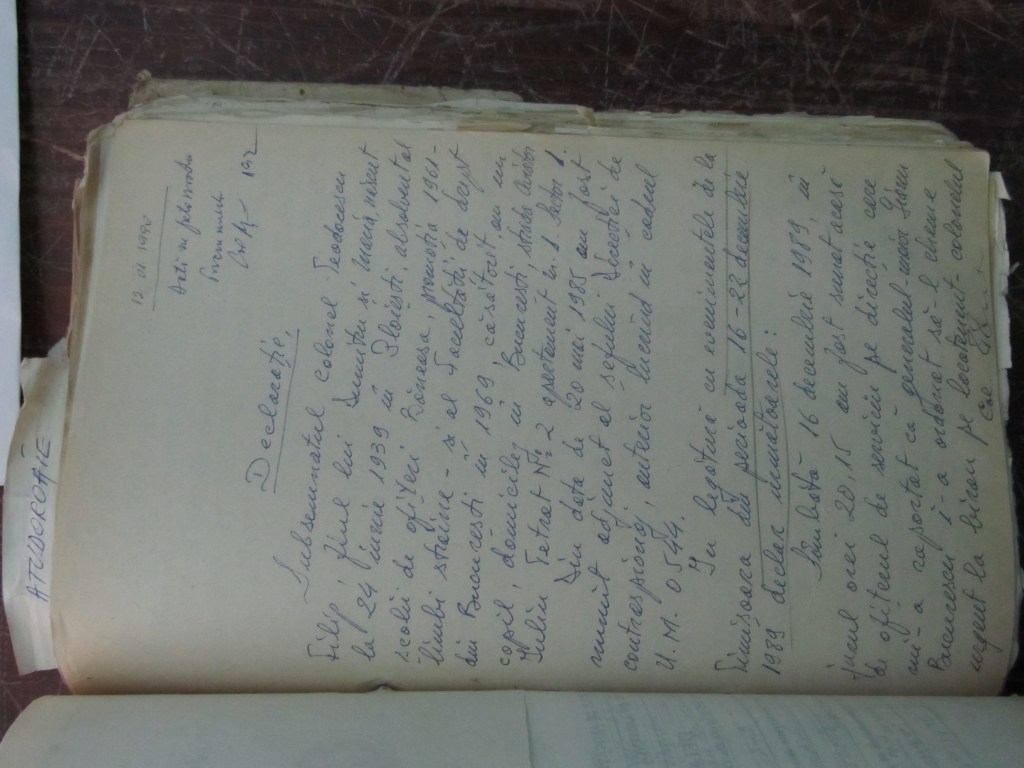 ATUDOROAIE
192
Declarație,
Subsemnatul colonel Teodorescu
Filip fiul lui Dumitru și Maria, născut
la 24 iunie 1939 în Ploiești, absolvent al
școlii de ofițeri Băneasa, promoția 1961-
limbi străine - și al Facultății de drept
din București în 1969 căsătorit, am un
copil, domiciliez în București, strada Liviu
Iuliu Tetrat No 2 apartament nr. 1. Sector 1.
Din data de 20 mai 1985 am fost
numit adjunct al șefului Direcției de
contraspionaj, anterior lucrînd în cadrul
U. M. 0544.
În legătură cu evenimentele de la
Timișoara din perioada 16-22 decembrie
1989 declar următoarele:
Sîmbătă 16 decembrie 1989, în
jurul orei 20,15 am fost sunat acasă
de ofițerul de serviciu pe direcție care
mi-a raportat că generalul-maior
Bucurescu i-a ordonat să-l cheme
urgent la birou pe locotenent-colonelul